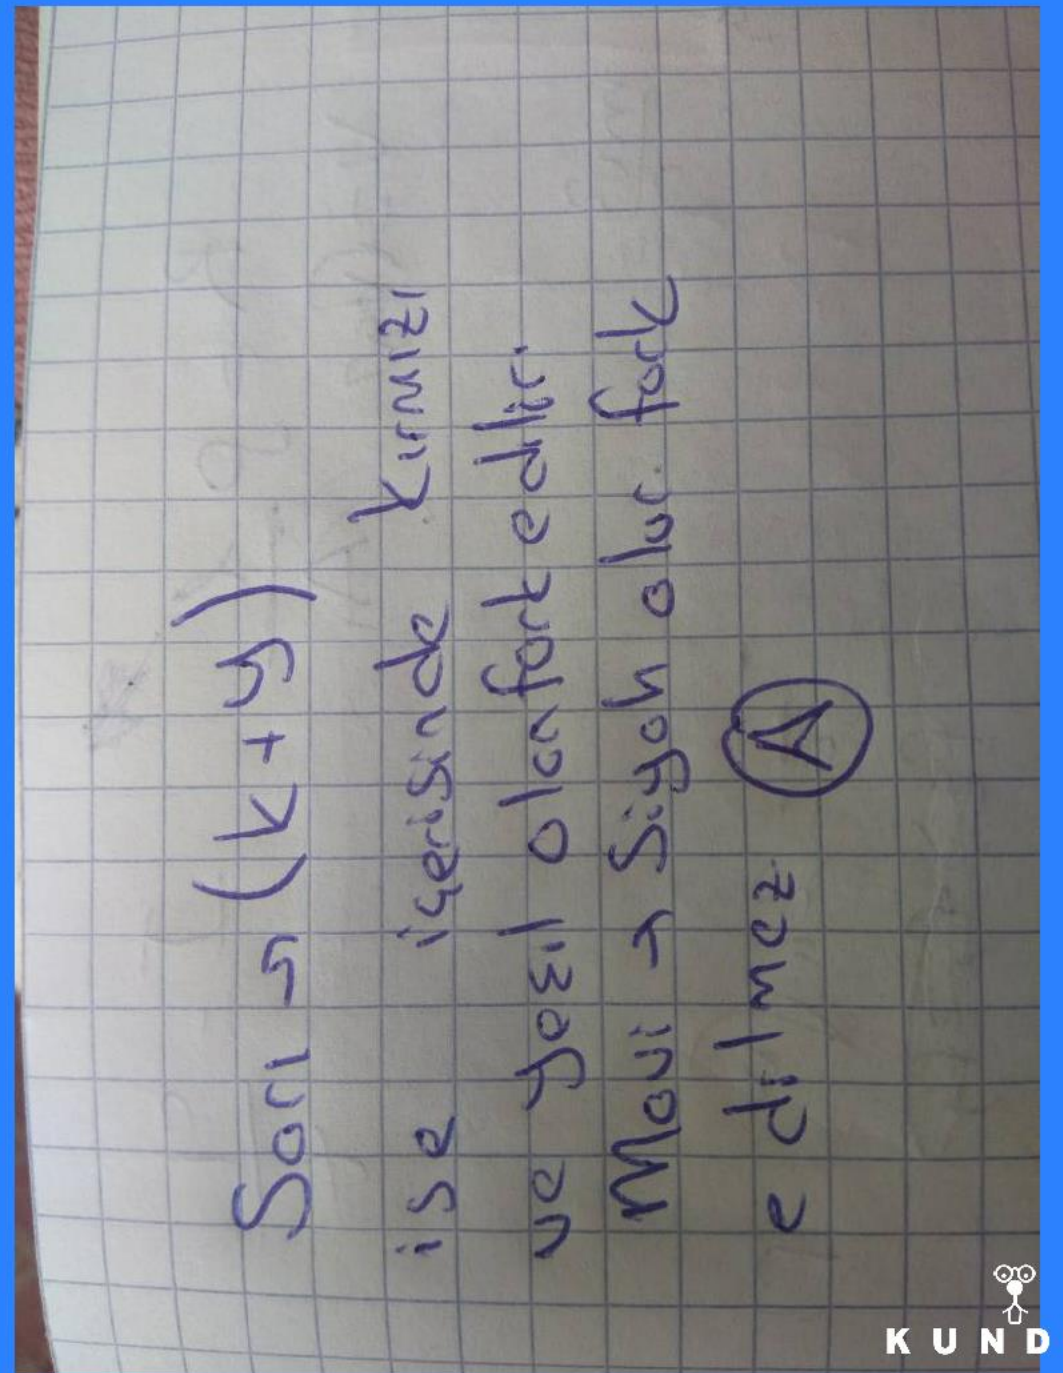 Sarı → (k+y)
ise içerisinde kırmızı
ve yeşil olan fark edilir.
Mavi → Siyah olur fark
edilmez A
KUND